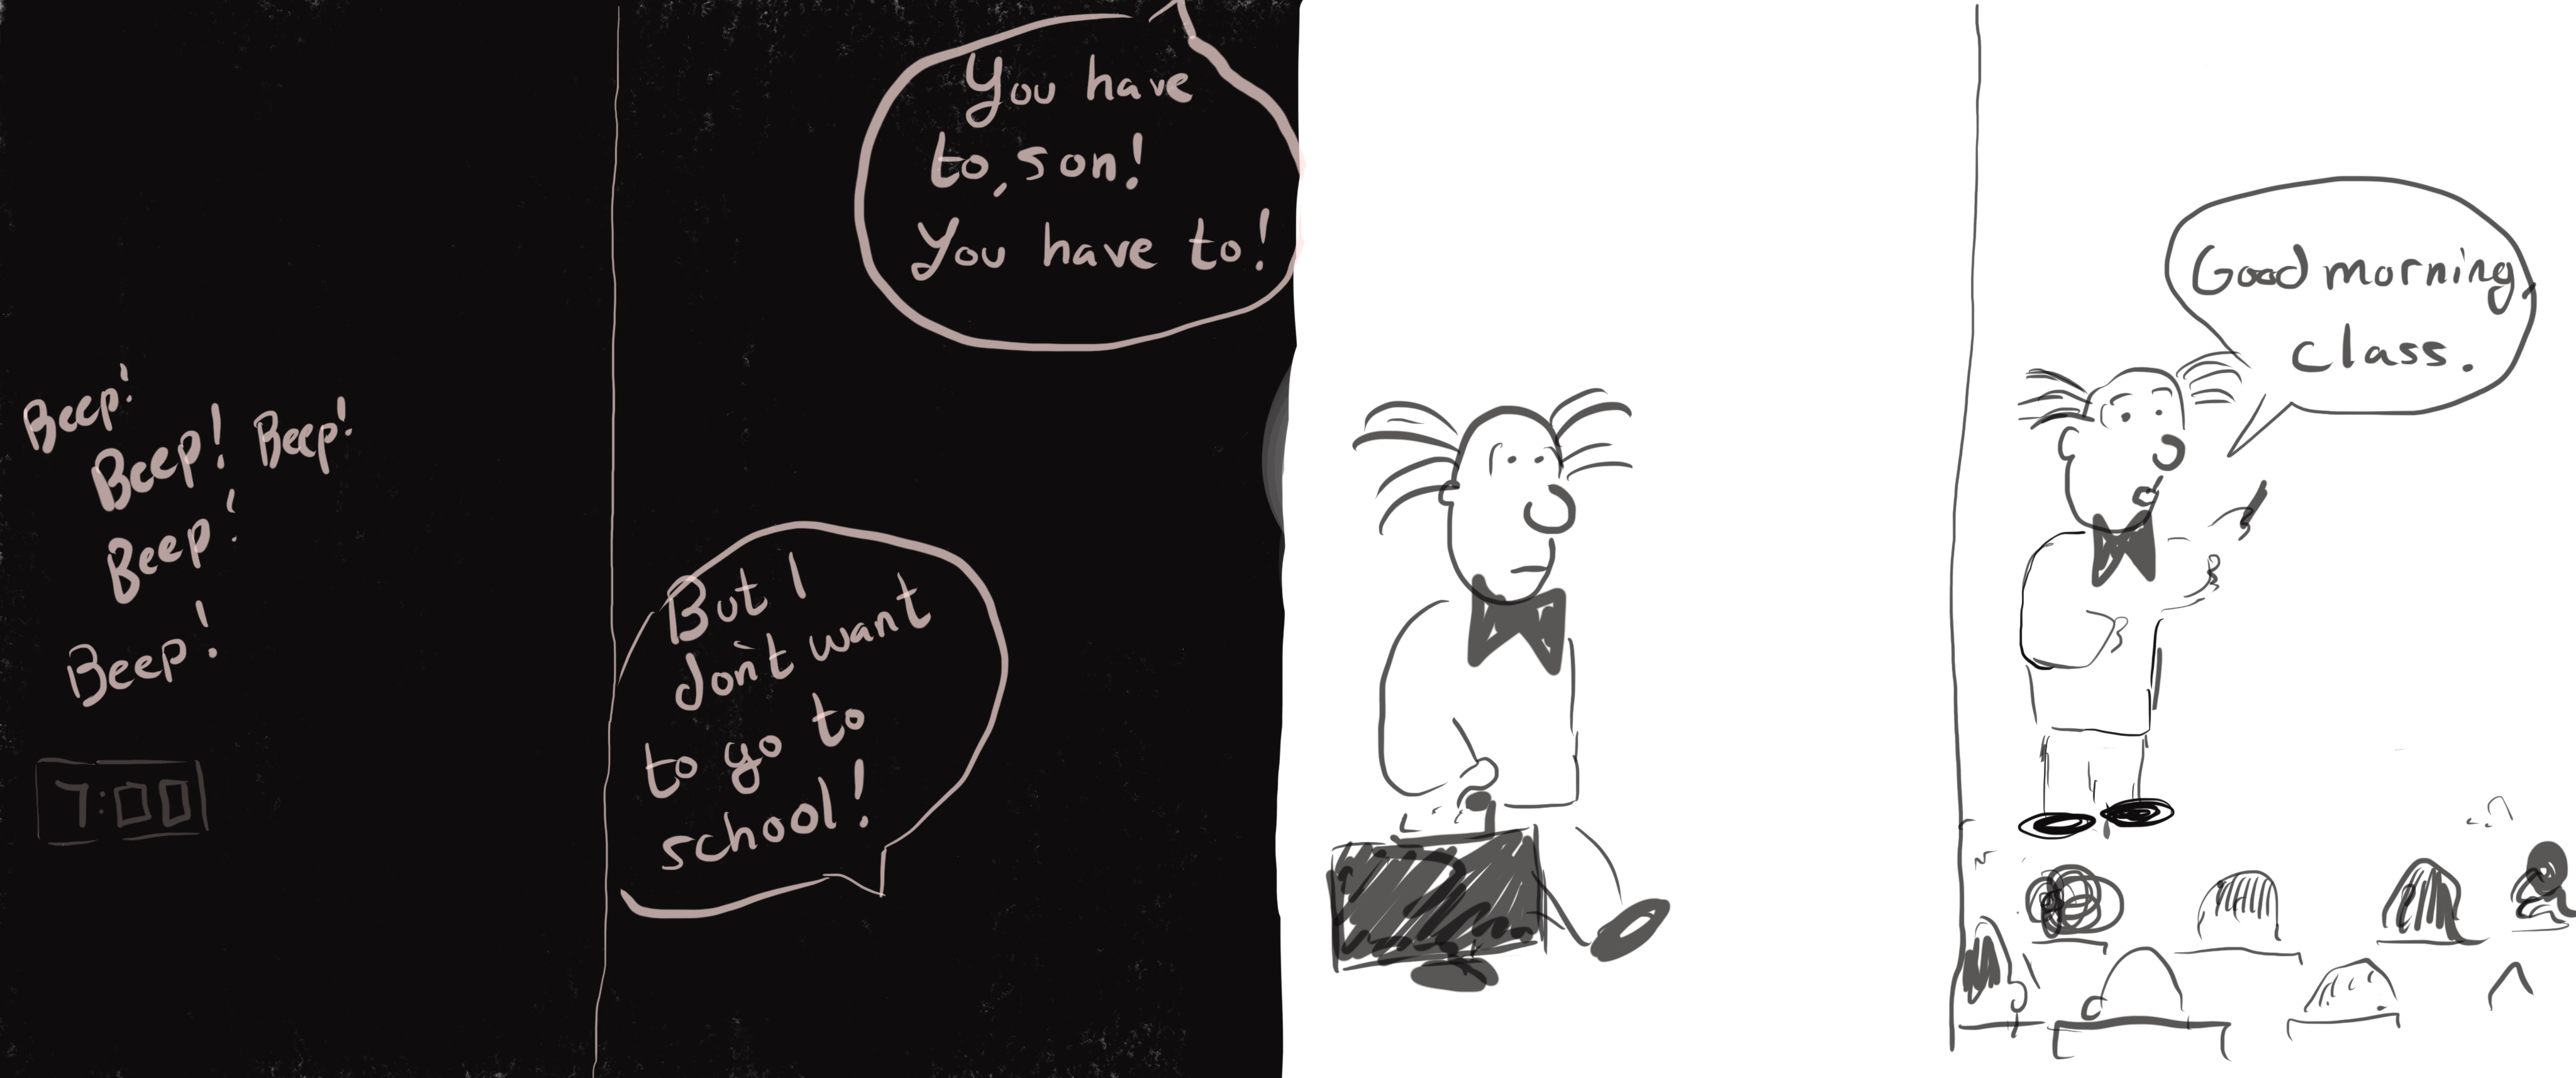 Beep!
Beep! Beep!
Beep!
Beep!
7:00
You have
to, son!
You have to!
But I
don't want
to go to
school!
Good morning,
class.